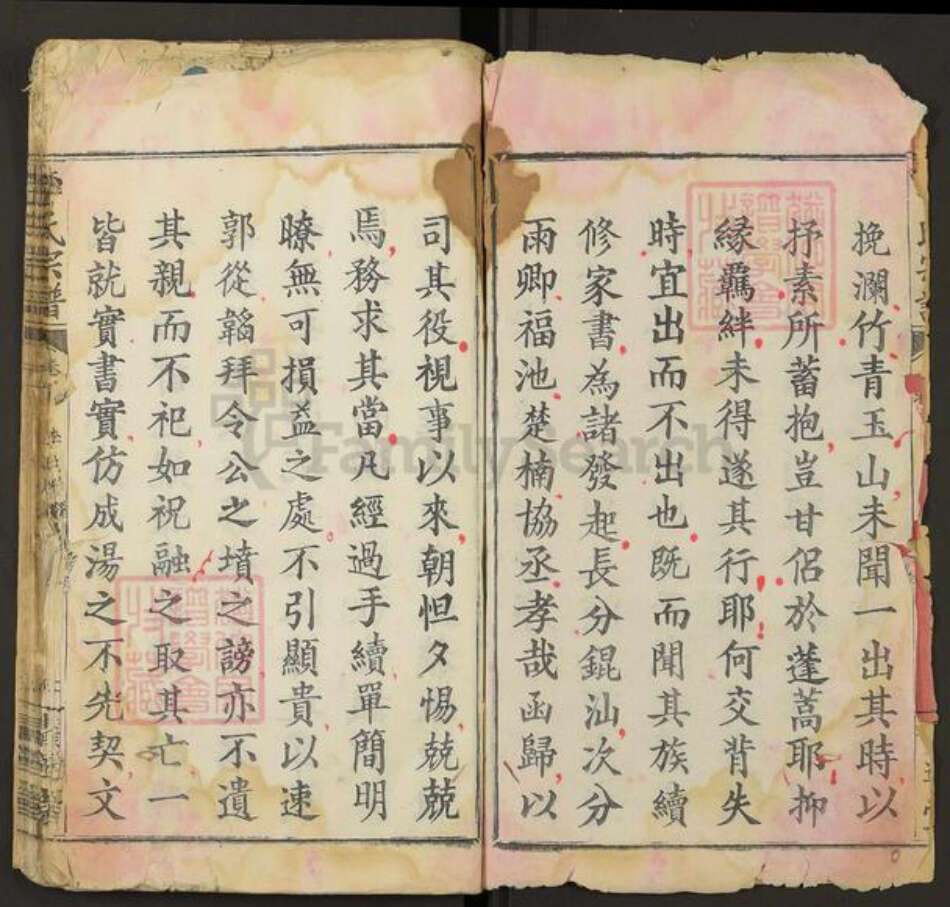 挽瀾竹青玉山未聞一出其時以
抒素所蓄抱豈甘侶於蓬蒿耶抑
緣羈絆未得遂其行耶何交背失
時宜出而不出也既而聞其族續
修家書為諸發起長分錕汕次分
雨卿福池楚楠協丞孝哉函歸以
司其役視事以來朝怛夕惕兢兢
焉務求其當凡經過手續單簡明
瞭無可損益之處不引顯貴以速
郭從韜拜令公之墳之謗亦不遺
其親而不祀如祝融之取其亡一
皆就實書實仿成湯之不先契文
氏宗譜
FamilySearch